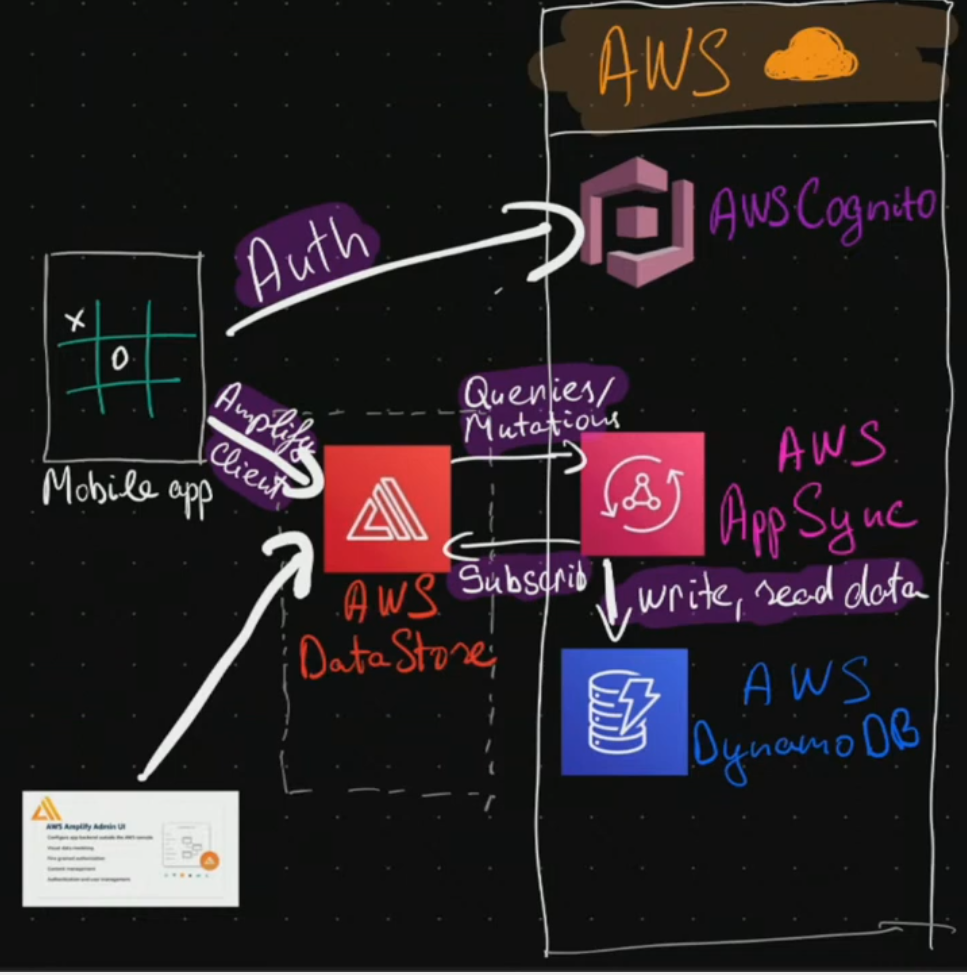 AWS
AWS Cognito
Auth
X
O
Mobile app
Amplify
Client
Queries/
Mutations
AWS
AppSync
Subscrib
AWS
DataStore
write, read data
AWS
DynamoDB
AWS Amplify Admin UI
Configure app backend outside the AWS console
Visual data modeling
Fine-grained authorization
Content management
Authentication and user management